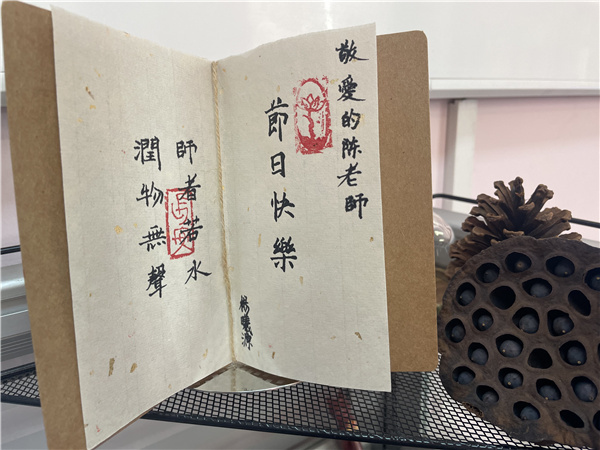 敬愛的陈老師
節日快樂
師者若水
潤物無聲